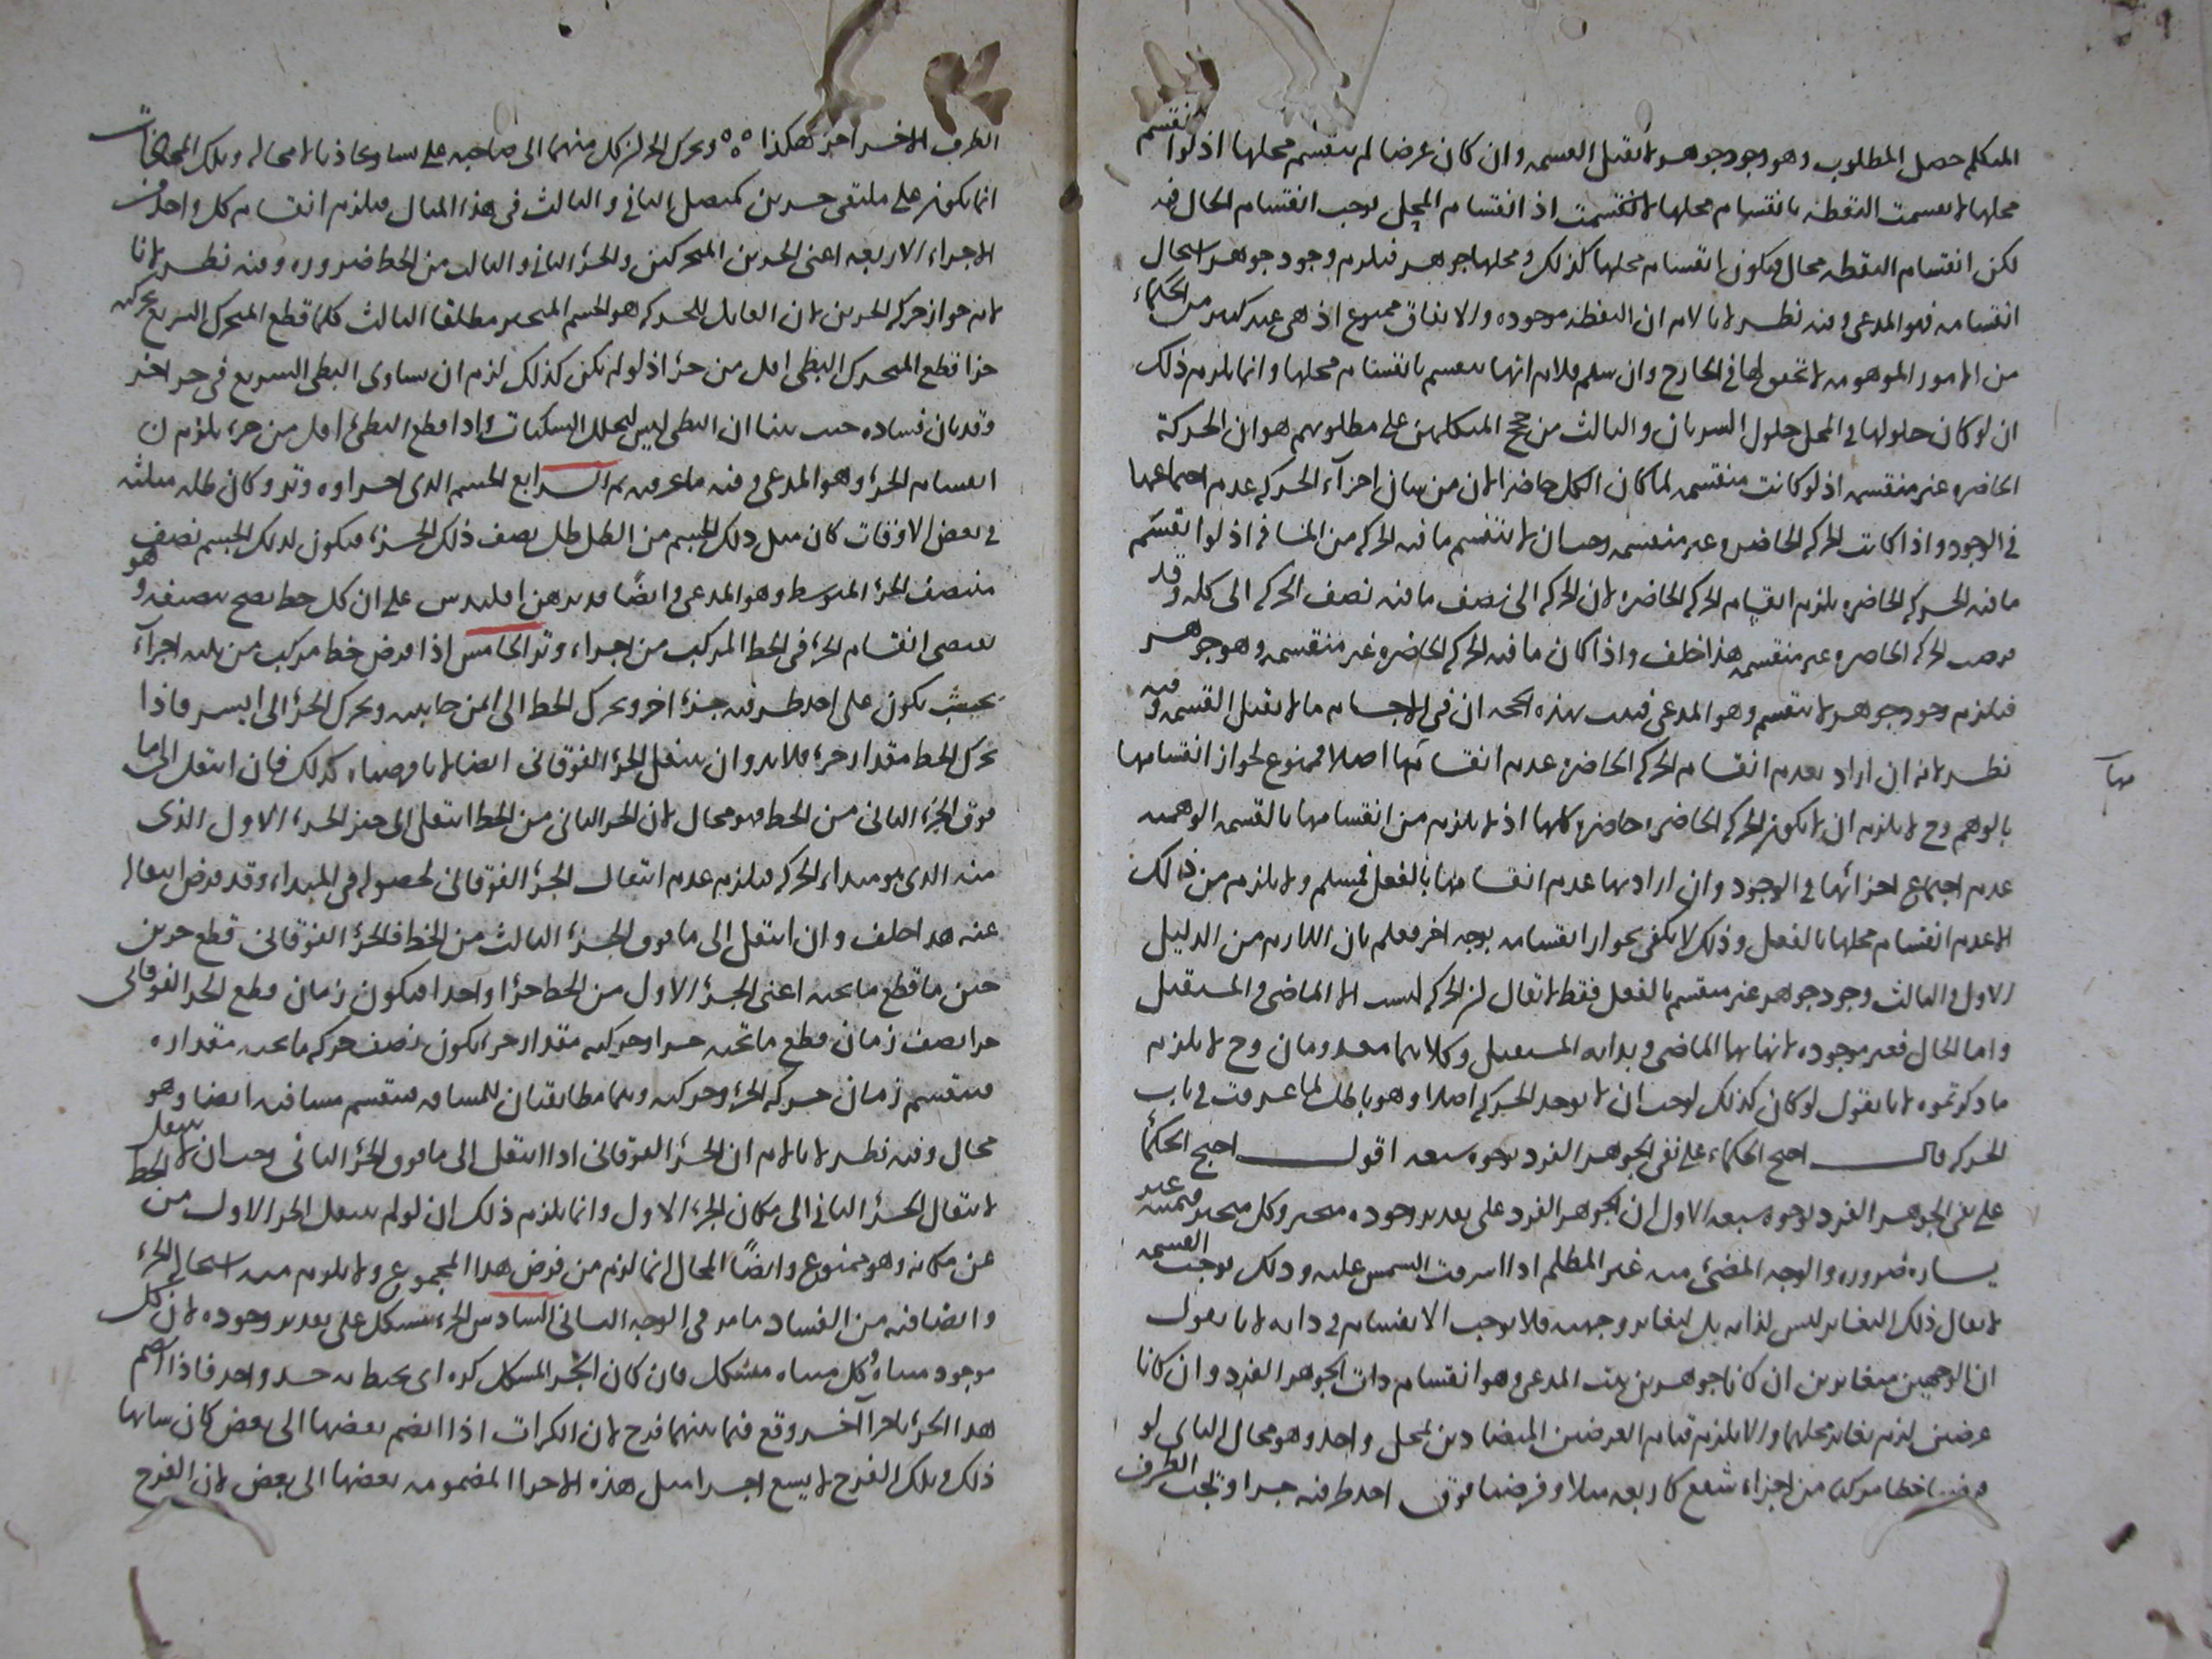 المتكلم حصل المطلوب وهو وجود جوهر لا يقبل القسمة وان كان عرضا لم ينقسم محلها اذ لو انقسم
محلها لانقسمت النقطة بانقسام محلها لانقسمت اذ انقسام المحل يوجب انقسام الحال فيه
لكن انقسام النقطة محال فيكون انقسام محلها كذلك ومحلها جوهر فيلزم وجود جوهر استحال
انقسامه فهو المدعى وفيه نظر لانا لانم ان النقطة موجودة والاتفاق ممنوع اذ هي عند كثير من الحكماء
من الامور الموهومة لا تحقق لها في الخارج وان سلم فلانم انها تنقسم بانقسام محلها وانما يلزم ذلك
ان لو كان حلولها في المحل حلول السريان والثالث من حجج المتكلمين على مطلوبهم هو ان الحركة
الحاضرة غير منقسمة اذ لو كانت منقسمة لما كان الكل حاضرا لان من شان اجزآء الحركة عدم اجتماعها
في الوجود واذا كانت الحركة الحاضرة غير منقسمة وجب ان لا ينقسم ما فيه الحركة من المسافة اذ لو انقسم
ما فيه الحركة الحاضرة يلزم انقسام الحركة الحاضرة لان الحركة الى نصف ما فيه نصف الحركة الى كله وقد
فرضت الحركة الحاضرة غير منقسمة هذا خلف واذا كان ما فيه الحركة الحاضرة غير منقسمة وهو جوهر
فيلزم وجود جوهر لا ينقسم وهو المدعى فثبت بهذه الحجة ان في الاجسام ما لا يقبل القسمة وفيه
نظر لانه ان اراد بعدم انقسام الحركة الحاضرة عدم انقسامها اصلا فممنوع لجواز انقسامها
بالوهم وح لا يلزم ان لا يكون الحركة الحاضرة حاضرة كلها اذ لا يلزم من انقسامها بالقسمة الوهمية
عدم اجتماع اجزائها في الوجود وان اراد بها عدم انقسامها بالفعل فمسلم ولا يلزم من ذلك
الا عدم انقسام محلها بالفعل وذلك لا يكفي لجواز انقسامه بوجه اخر فعلم بان اللازم من الدليل
الاول والثالث وجود جوهر غير منقسم بالفعل فقط لا يقال ان الحركة ليست الا الماضي والمستقبل
واما الحال فغير موجودة لانها نهاية الماضي وبداية المستقبل وكلاهما معدومان وح لا يلزم
ما ذكرتموه لانا نقول لو كان كذلك لوجب ان لا يوجد الحركة اصلا وهو باطل لما عرفت في باب
الحركة قال احتج الحكماء على نفي الجوهر الفرد بوجوه سبعة اقول احتج الحكما
على نفي الجوهر الفرد بوجوه سبعة الاول ان الجوهر الفرد على تقدير وجوده متحيز وكل متحيز فيمينه غير
يساره ضرورة والوجه المضئ منه غير المظلم اذا اشرقت الشمس عليه وذلك يوجب القسمة
لا يقال ذلك التغاير ليس لذاته بل لتغاير وجهيه فلا يوجب الانقسام في ذاته لانا نقول
ان الوجهين متغايرين ان كانا جوهرين ثبت المدعى وهو انقسام ذات الجوهر الفرد وان كانا
عرضين لزم تغاير محلهما والا يلزم قيام العرضين المتضادين لمحل واحد وهو محال الثاني لو
فرضنا خطا مركبا من اجزاء شفع كاربعة مثلا وفرضنا فوق احد طرفيه جزا وتحت الطرف
الطرف الاخر اخر هكذا ٥٥٥ وتحرك الجزآن كل منهما الى صاحبه على تساو تحاذيا لا محالة وتلك المحاذات
انما يكون على ملتقى جزءين كمتصل الثاني والثالث في هذا المثال فيلزم انقسام كل واحد من
الاجزاء الاربعة اعنى الجزءين المتحركين والجزء الثاني والثالث من الخط ضرورة وفيه نظر لانا
لانم جواز حركة الجزءين لان القابل للحركة هو الجسم المتحيز مطلقا الثالث كلما قطع المتحرك السريع بحركته
جزا قطع المتحرك البطى اقل من جزء اذ لو لم يكن كذلك لزم ان يساوى البطى السريع في جزء اخر
وقد بان فساده حيث بينا ان البطى ليس لتخلل السكنات واذا قطع البطئ اقل من جزء يلزم ان
انقسام الجزء وهو المدعى وفيه ما عرفت ثم الرابع الجسم الذي اجزاوه وتر وكان ظله مثليه
في بعض الاوقات كان مثل ذلك الجسم من الظل ظل نصف ذلك الجزء فيكون لذلك الجسم نصف هو
منتصف الجزء المتوسط وهو المدعى وايضا قد برهن اقليدس على ان كل خط يصح تنصيفه وهو
يقتضى انقسام الجزء في الخط المركب من اجزاء وتر الخامس اذا فرض خط مركب من ثلثة اجزآء
بحيث يكون على احد طرفيه جزء اخر وتحرك الخط الى ايمن جانبيه وتحرك الجزء الى ايسر فاذا
تحرك الخط مقدار جزء فلا بد وان ينتقل الجزء الفوقاني ايضا لانا فرضناه كذلك فان انتقل الى ما
فوق الجزء الثاني من الخط فهو محال لان الجزء الثاني من الخط انتقل الى حيز الجزء الاول الذى
منه الذى هو مبداء الحركة فيلزم عدم انتقال الجزء الفوقاني لحصوله في المبداء وقد فرض انتقاله
عنه هذا خلف وان انتقل الى ما فوق الجزء الثالث من الخط فالجزء الفوقاني قطع جزءين
حين ما قطع ما تحته اعنى الجزء الاول من الخط جزءا واحدا فيكون زمان قطع الجزء الفوقانى
جزا نصف زمان قطع ما تحته جزا وحركته مقدار جزء يكون نصف حركة ما تحته مقداره
فينقسم زمان حركة الجزء وحركته وهما مطابقتان للمسافة فينقسم مسافته ايضا وهو
محال وفيه نظر لانا لانم ان الجزء الفوقاني اذا انتقل الى ما فوق الجزء الثاني وجب ان لا ينتقل الخط
لانتقال الجزء الثاني الى مكان الجزء الاول وانما يلزم ذلك ان لو لم ينتقل الجزء الاول من
عن مكانه وهو ممنوع وايضا المحال انما لزم من فرض هذا المجموع ولا يلزم منه استحالة الجزء
وايضا فيه من الفساد ما مر في الوجه الثاني السادس الجزء متشكل على تقدير وجوده لان كل
موجود متناه وكل متناه متشكل فان كان الجزء المتشكل كرة اى يحيط به حد واحد فاذا انضم
هذا الجزء باجزآ اخر وقع فيما بينهما فرج لان الكرات اذا انضم بعضها الى بعض كان شانها
ذلك وتلك الفرج لا يسع اجزا مثل هذه الاجزا المضمومة بعضها الى بعض لان الفرج